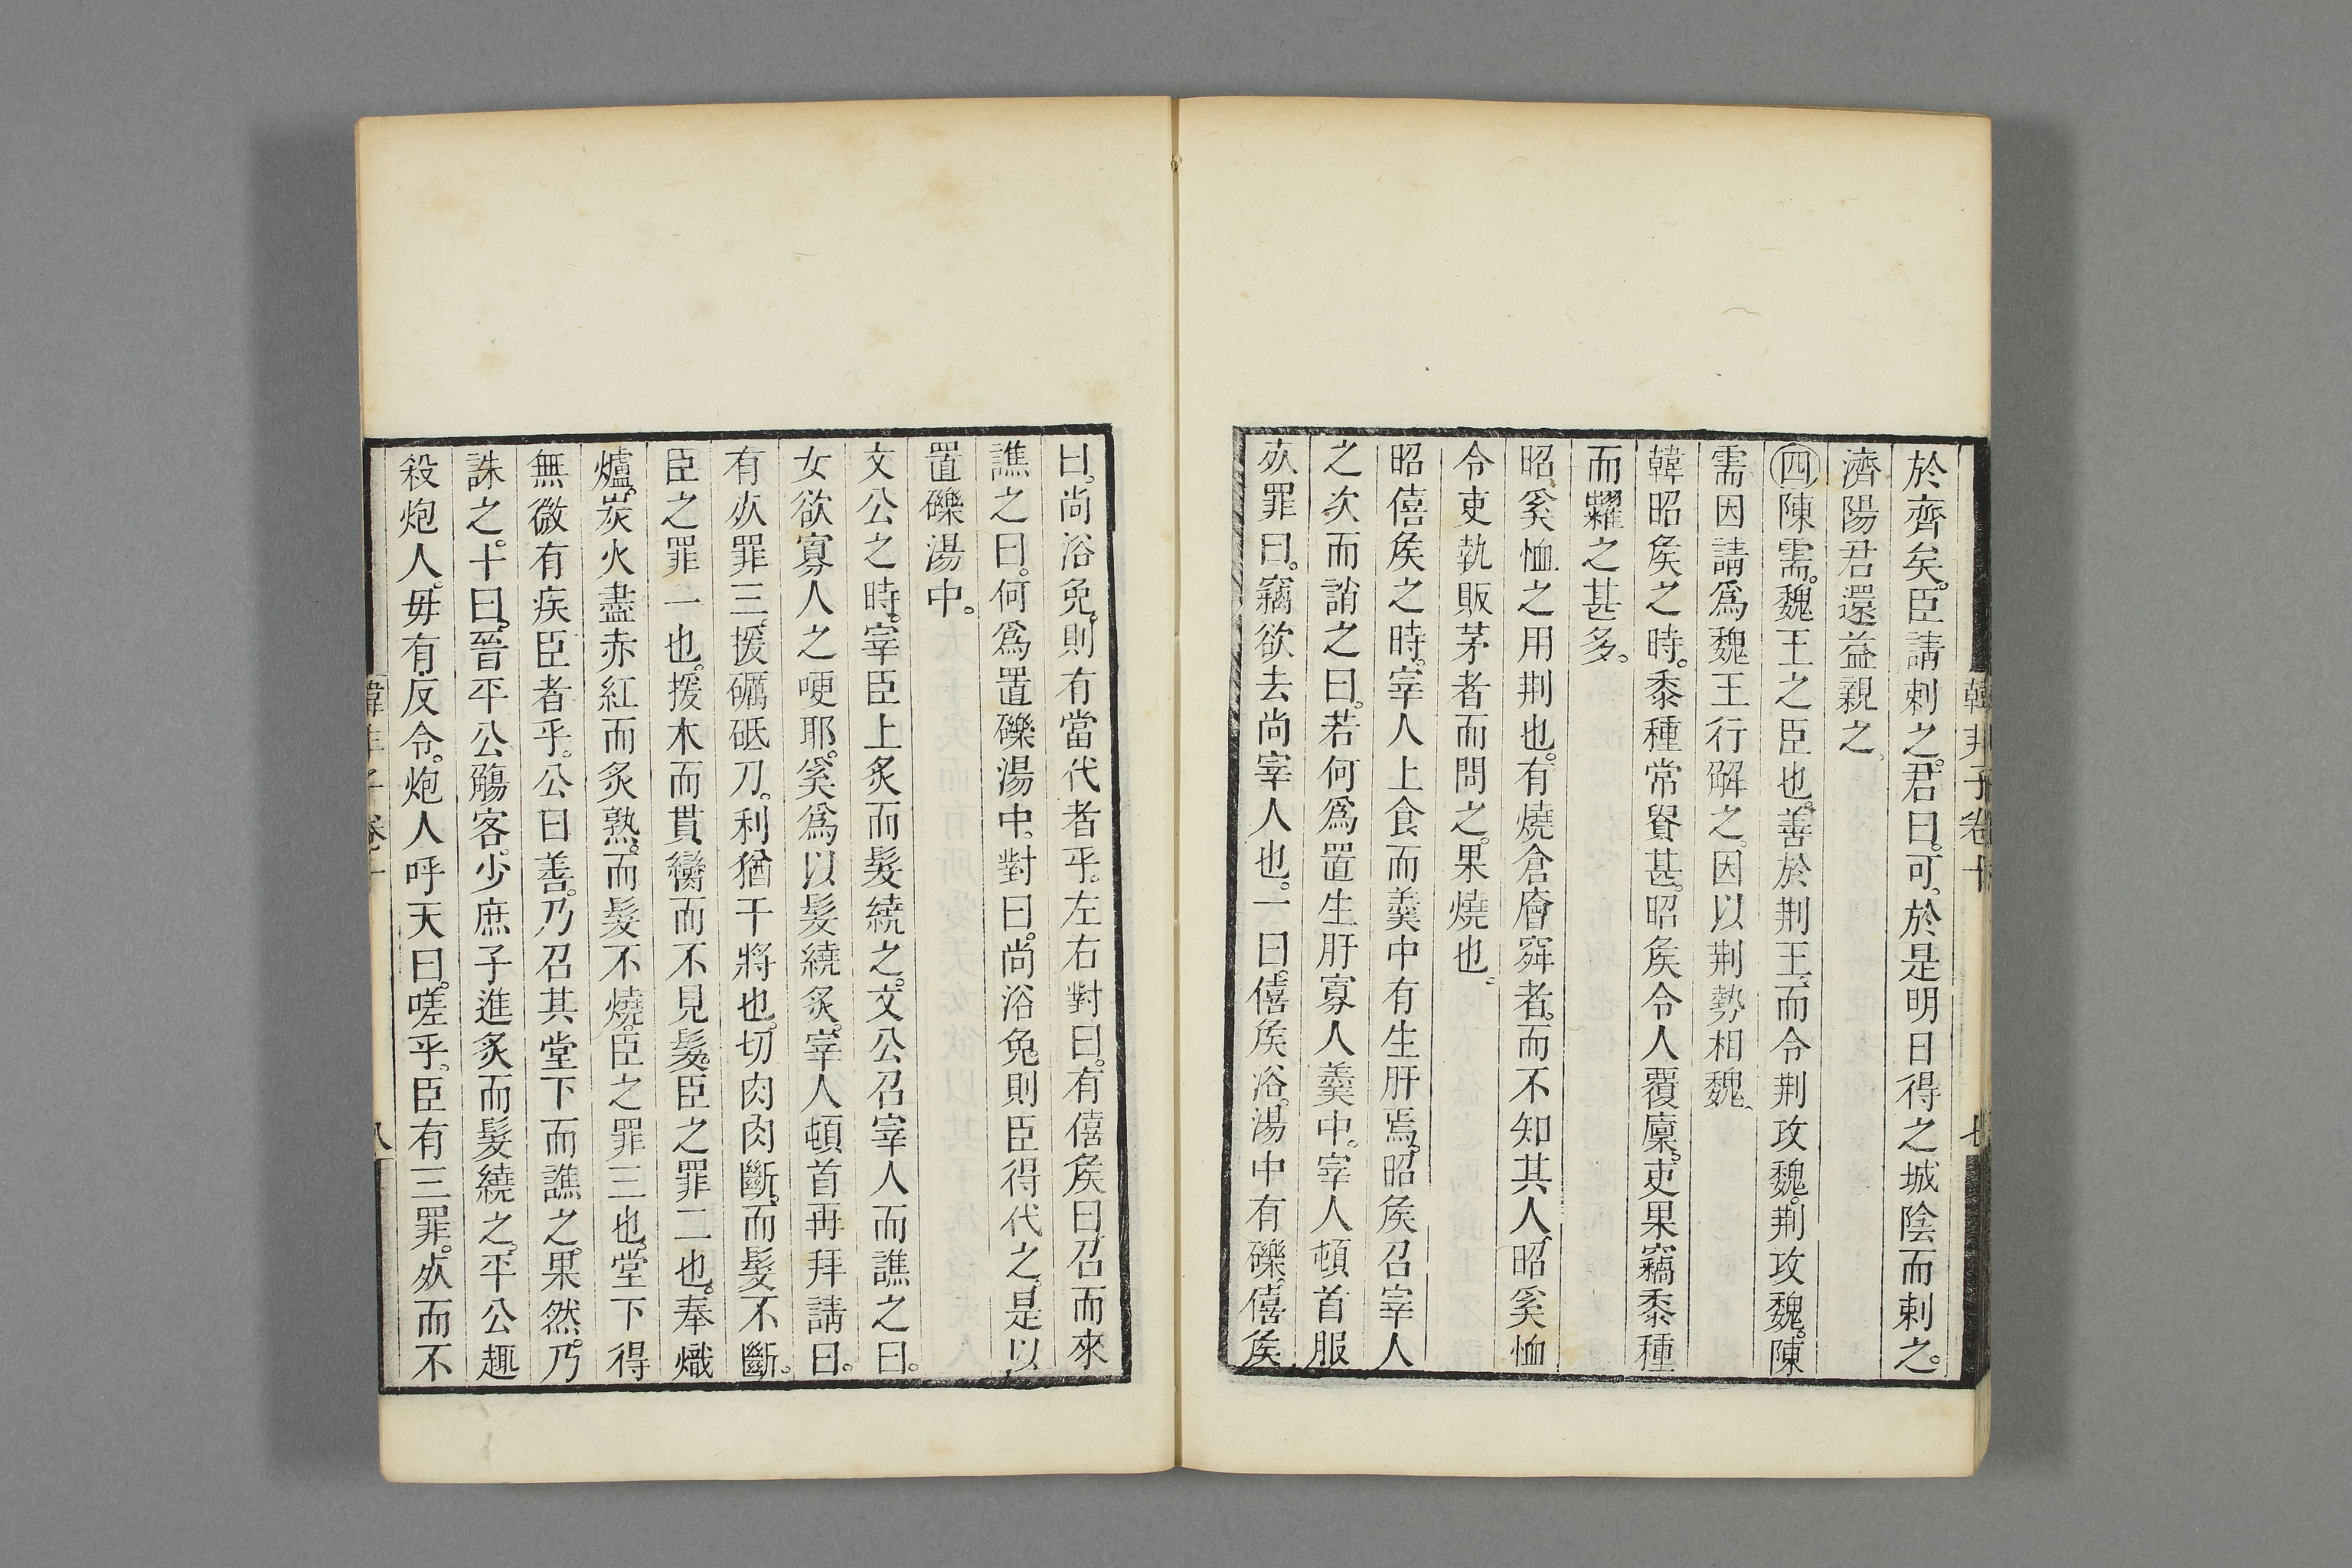 韓非子卷十
七
於齊矣。臣請刺之。君曰。可、於是明日得之城陰而刺之。
濟陽君還益親之、
四陳需。魏王之臣也。善於荆王、而令荆攻魏。荆攻魏。陳
需因請爲魏王行解之。因以荆勢相魏、
韓昭矦之時。黍種常貴甚。昭矦令人覆廩。吏果竊黍種
而糶之甚多。
昭奚恤之用荆也。有燒倉廥窌者。而不知其人、昭奚恤
令吏執販茅者而問之。果燒也。
昭僖矦之時。宰人上食而羹中有生肝焉。昭矦召宰人
之次而誚之曰。若何爲置生肝寡人羹中。宰人頓首服
死罪曰。竊欲去尚宰人也。一曰。僖矦浴。湯中有礫。僖矦
曰。尚浴免。則有當代者乎。左右對曰。有僖矦曰召而來
譙之曰。何爲置礫湯中。對曰。尚浴免。則臣得代之。是以
置礫湯中。
文公之時。宰臣上炙而髮繞之。文公召宰人而譙之曰。
女欲寡人之哽耶。奚爲以髮繞炙。宰人頓首再拜請曰。
有死罪三。援礪砥刀。利猶干將也。切肉肉斷。而髮不斷。
臣之罪一也。援木而貫臠而不見髮。臣之罪二也。奉熾
爐。炭火盡赤紅而炙熟。而髮不燒。臣之罪三也。堂下得
無微有疾臣者乎。公曰善。乃召其堂下而譙之。果然。乃
誅之。十曰。晉平公觴客。少庶子進炙而髮繞之。平公趣
殺炮人。毋有反令。炮人呼天曰。嗟乎。臣有三罪。死而不
八